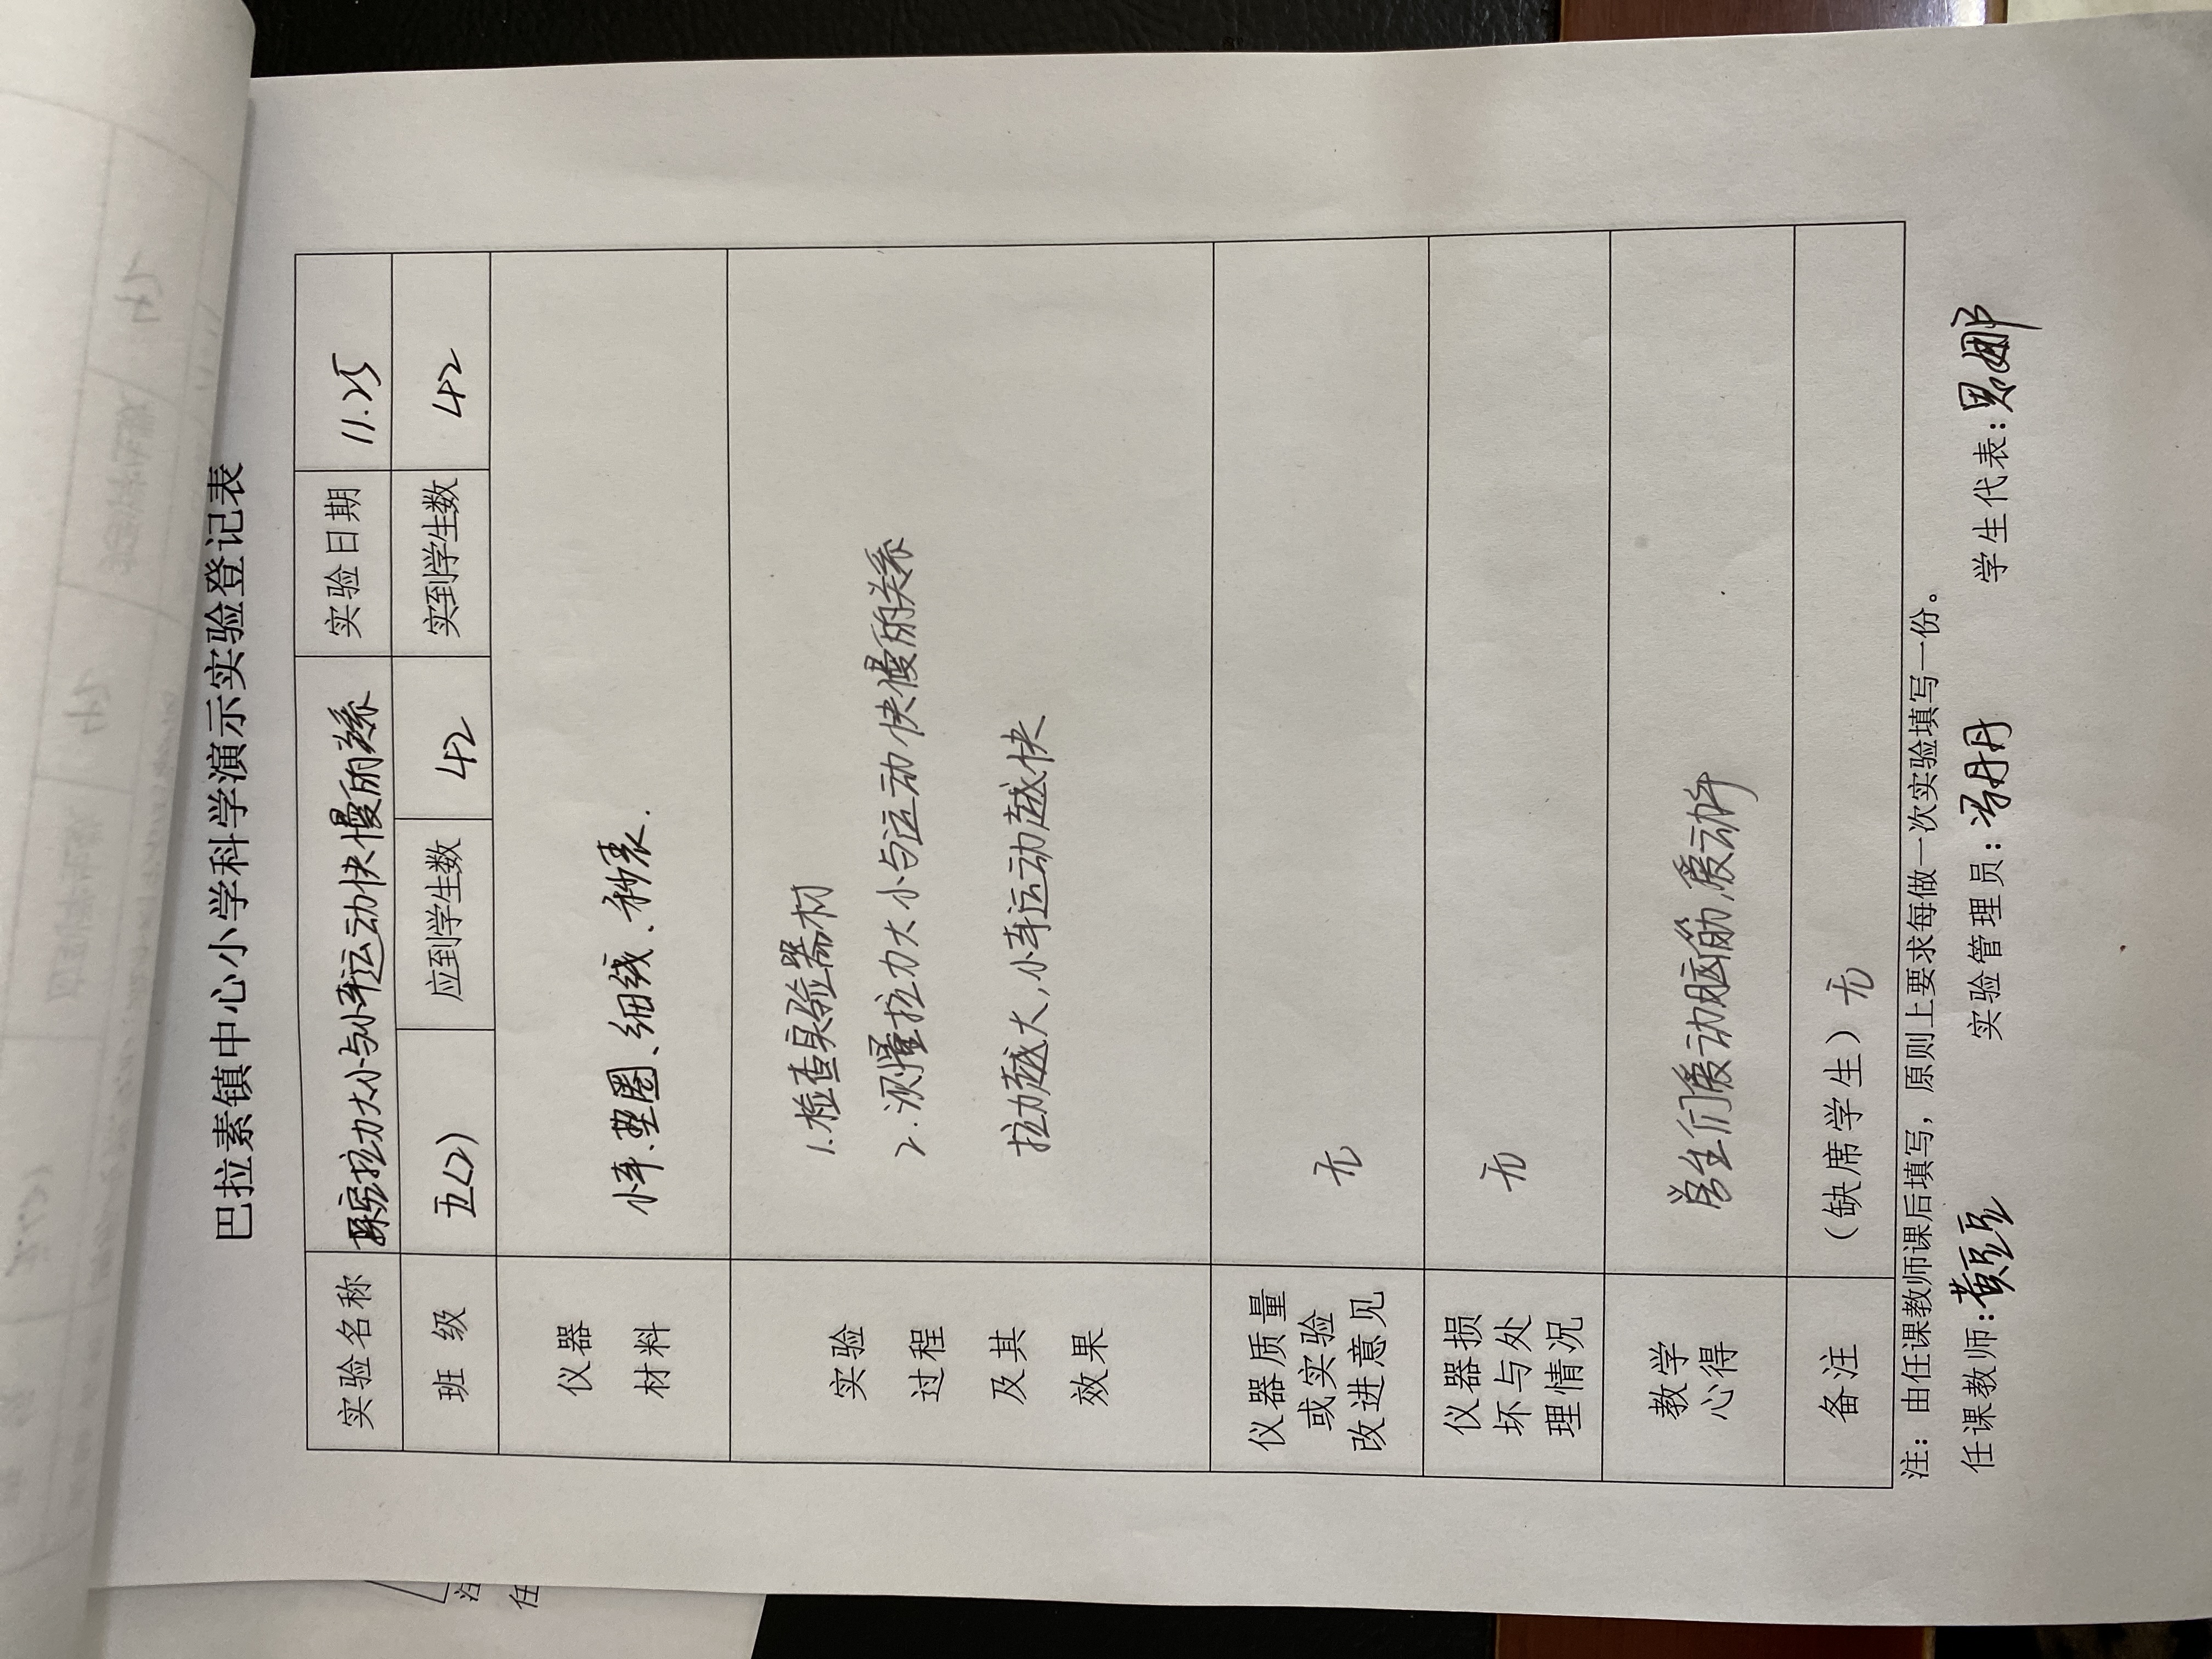 巴拉素镇中心小学科学演示实验登记表
实验名称 探究拉力大小与小车运动快慢的关系 实验日期 11.25
班 级 五(2) 应到学生数 42 实到学生数 42
仪器
材料
小车、垫圈、细线、秒表.
实验
过程
及其
效果
1.检查实验器材
2.测量拉力大小与运动快慢的关系
拉力越大,小车运动越快
仪器质量
或实验
改进意见
无
仪器损
坏与处
理情况
无
教学
心得
学生们爱动脑筋,爱动手
备注 (缺席学生) 无
注:由任课教师课后填写,原则上要求每做一次实验填写一份。
任课教师:黄豆豆 实验管理员:冯丹丹 学生代表:思娜